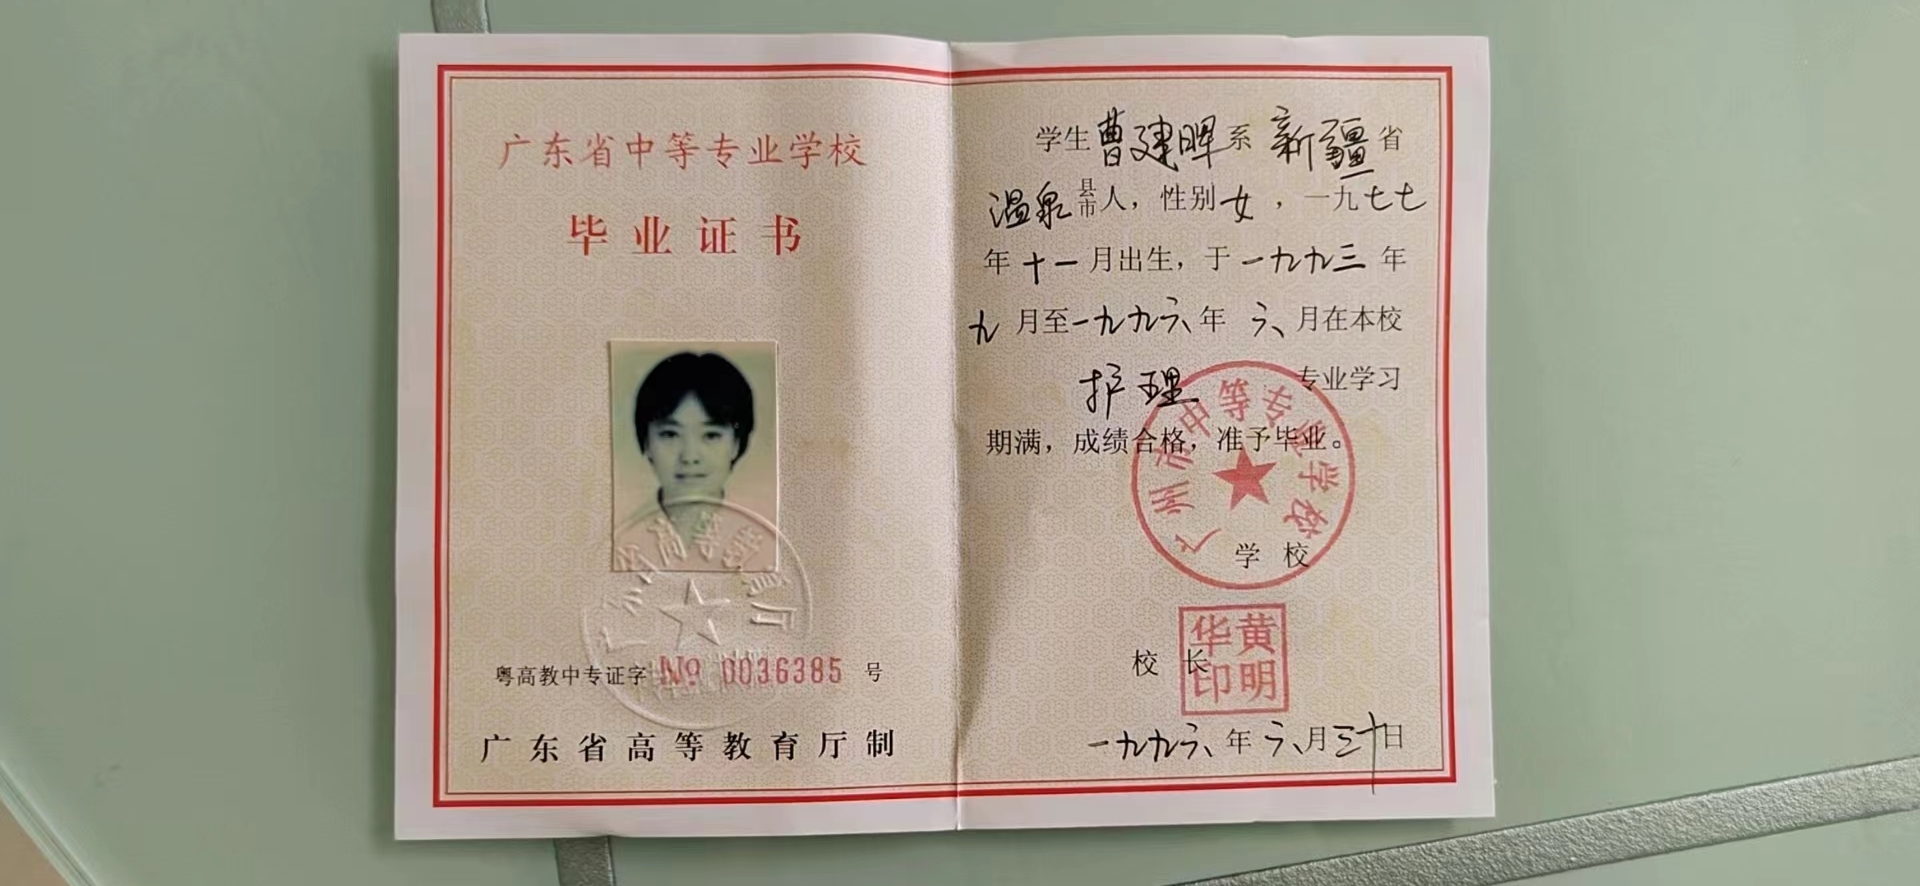 广东省中等专业学校
毕业证书
粤高教中专证字 № 0036385 号
广东省高等教育厅制
学生曹建晖系新疆省
温泉县市人，性别女，一九七七
年十一月出生，于一九九三年
九月至一九九六年六月在本校
护理专业学习
期满，成绩合格，准予毕业。
广州市中等专业学校
学校
校长
黄明华印
一九九六年六月三十日